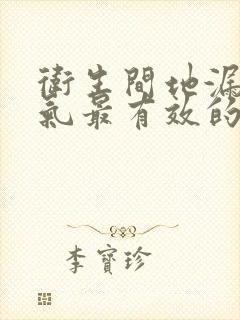 衛生間地漏
氣最有效的
李寶珍